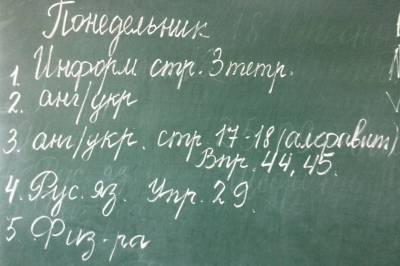 Понедельник
1. Информ стр. 3 тетр.
2. анг/укр
3. анг/укр. стр. 17-18 (алфавит)
Впр. 44, 45.
4. Рус. яз. Упр. 29.
5. Физ-ра